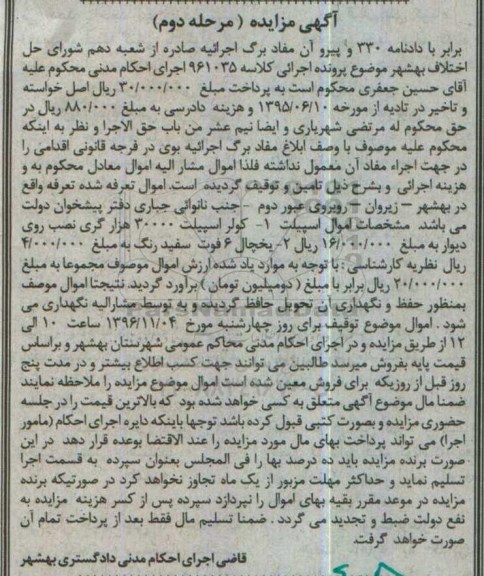 آگهی مزایده ( مرحله دوم)
برابر با دادنامه ۳۳۰ و پیرو آن مفاد برگ اجرائیه صادره از شعبه دهم شورای حل
اختلاف بهشهر موضوع پرونده اجرائی کلاسه ۹۶۱۰۳۵ اجرای احکام مدنی محکوم علیه
آقای حسین جعفری محکوم است به پرداخت مبلغ ۳۰/۰۰۰/۰۰۰ ریال اصل خواسته
و تاخیر در تادیه از مورخه ۱۳۹۵/۰۶/۱۰ و هزینه دادرسی به مبلغ ۸۸۰/۰۰۰ ریال در
حق محکوم له مرتضی شهریاری و ایضا نیم عشر من باب حق الاجرا و نظر به اینکه
محکوم علیه موصوف با وصف ابلاغ مفاد برگ اجرائیه بوی در فرجه قانونی اقدامی را
در جهت اجراء مفاد آن معمول نداشته فلذا اموال مشار الیه اموال معادل محکوم به و
هزینه اجرائی و بشرح ذیل تامین و توقیف گردیده است. اموال تعرفه شده تعرفه واقع
در بهشهر – زیروان – روبروی عبور دوم – جنب نانوائی جباری دفتر پیشخوان دولت
می باشد. مشخصات اموال اسپیلت ۱- کولر اسپیلت ۳۰۰۰۰ هزار گری نصب روی
دیوار به مبلغ ۱۶/۰۰۰/۰۰۰ ریال ۲- یخچال ۶ فوت سفید رنگ به مبلغ ۴/۰۰۰/۰۰۰
ریال نظریه کارشناسی : با توجه به موارد یاد شده ارزش اموال موصوف مجموعا به مبلغ
۲۰/۰۰۰/۰۰۰ ریال برابر با مبلغ ( دومیلیون تومان ) برآورد گردید. نتیجتا اموال موصف
بمنظور حفظ و نگهداری آن تحویل حافظ گردیده و به توسط مشارالیه نگهداری می
شود . اموال موضوع توقیف برای روز چهارشنبه مورخ ۱۳۹۶/۱۱/۰۴ ساعت ۱۰ الی
۱۲ از طریق مزایده و در اجرای احکام مدنی محاکم عمومی شهرستان بهشهر و براساس
قیمت پایه بفروش میرسد طالبین می توانند جهت کسب اطلاع بیشتر و در مدت پنج
روز قبل از روزیکه برای فروش معین شده است اموال موضوع مزایده را ملاحظه نمایند
ضمنا مال موضوع آگهی متعلق به کسی خواهد شده بود که بالاترین قیمت را در جلسه
حضوری مزایده و بصورت کتبی قبول کرده باشد توجها باینکه دایره اجرای احکام (مامور
اجرا) می تواند پرداخت بهای مال مورد مزایده را عند الاقتضا بوعده قرار دهد در این
صورت برنده مزایده باید ده درصد بها را فی المجلس بعنوان سپرده به قسمت اجرا
تسلیم نماید و حداکثر مهلت مزبور از یک ماه تجاوز نخواهد کرد در صورتیکه برنده
مزایده در موعد مقرر بقیه بهای اموال را نپردازد سپرده پس از کسر هزینه مزایده به
نفع دولت ضبط و تجدید می گردد . ضمنا تسلیم مال فقط بعد از پرداخت تمام آن
صورت خواهد گرفت.
قاضی اجرای احکام مدنی دادگستری بهشهر